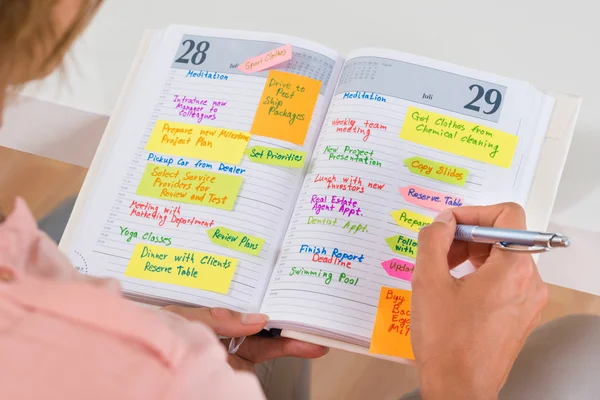 28
Sport Clothes
Meditation
Drive to
Post
Ship
Packages
Introduce new
Manager to
Colleagues
Prepare new Milestone
Project Plan
Set Priorities
Pickup Car from Dealer
Select Service
Providers for Review
and Test
Meeting with
Marketing Department
Review Plans
Yoga Classes
Dinner with Clients
Reserve Table
Juli
29
Meditation
Got Clothes from
Chemical cleaning
Weekly team
meeting
New Project
Presentation
Copy Slides
Lunch with new
Investors
Reserve Table
Real Estate
Agent Appt.
Prepare
Dentist Appt.
Follow
with
Finish Report
Deadline
Upda
Swimming Pool
Buy
Mil